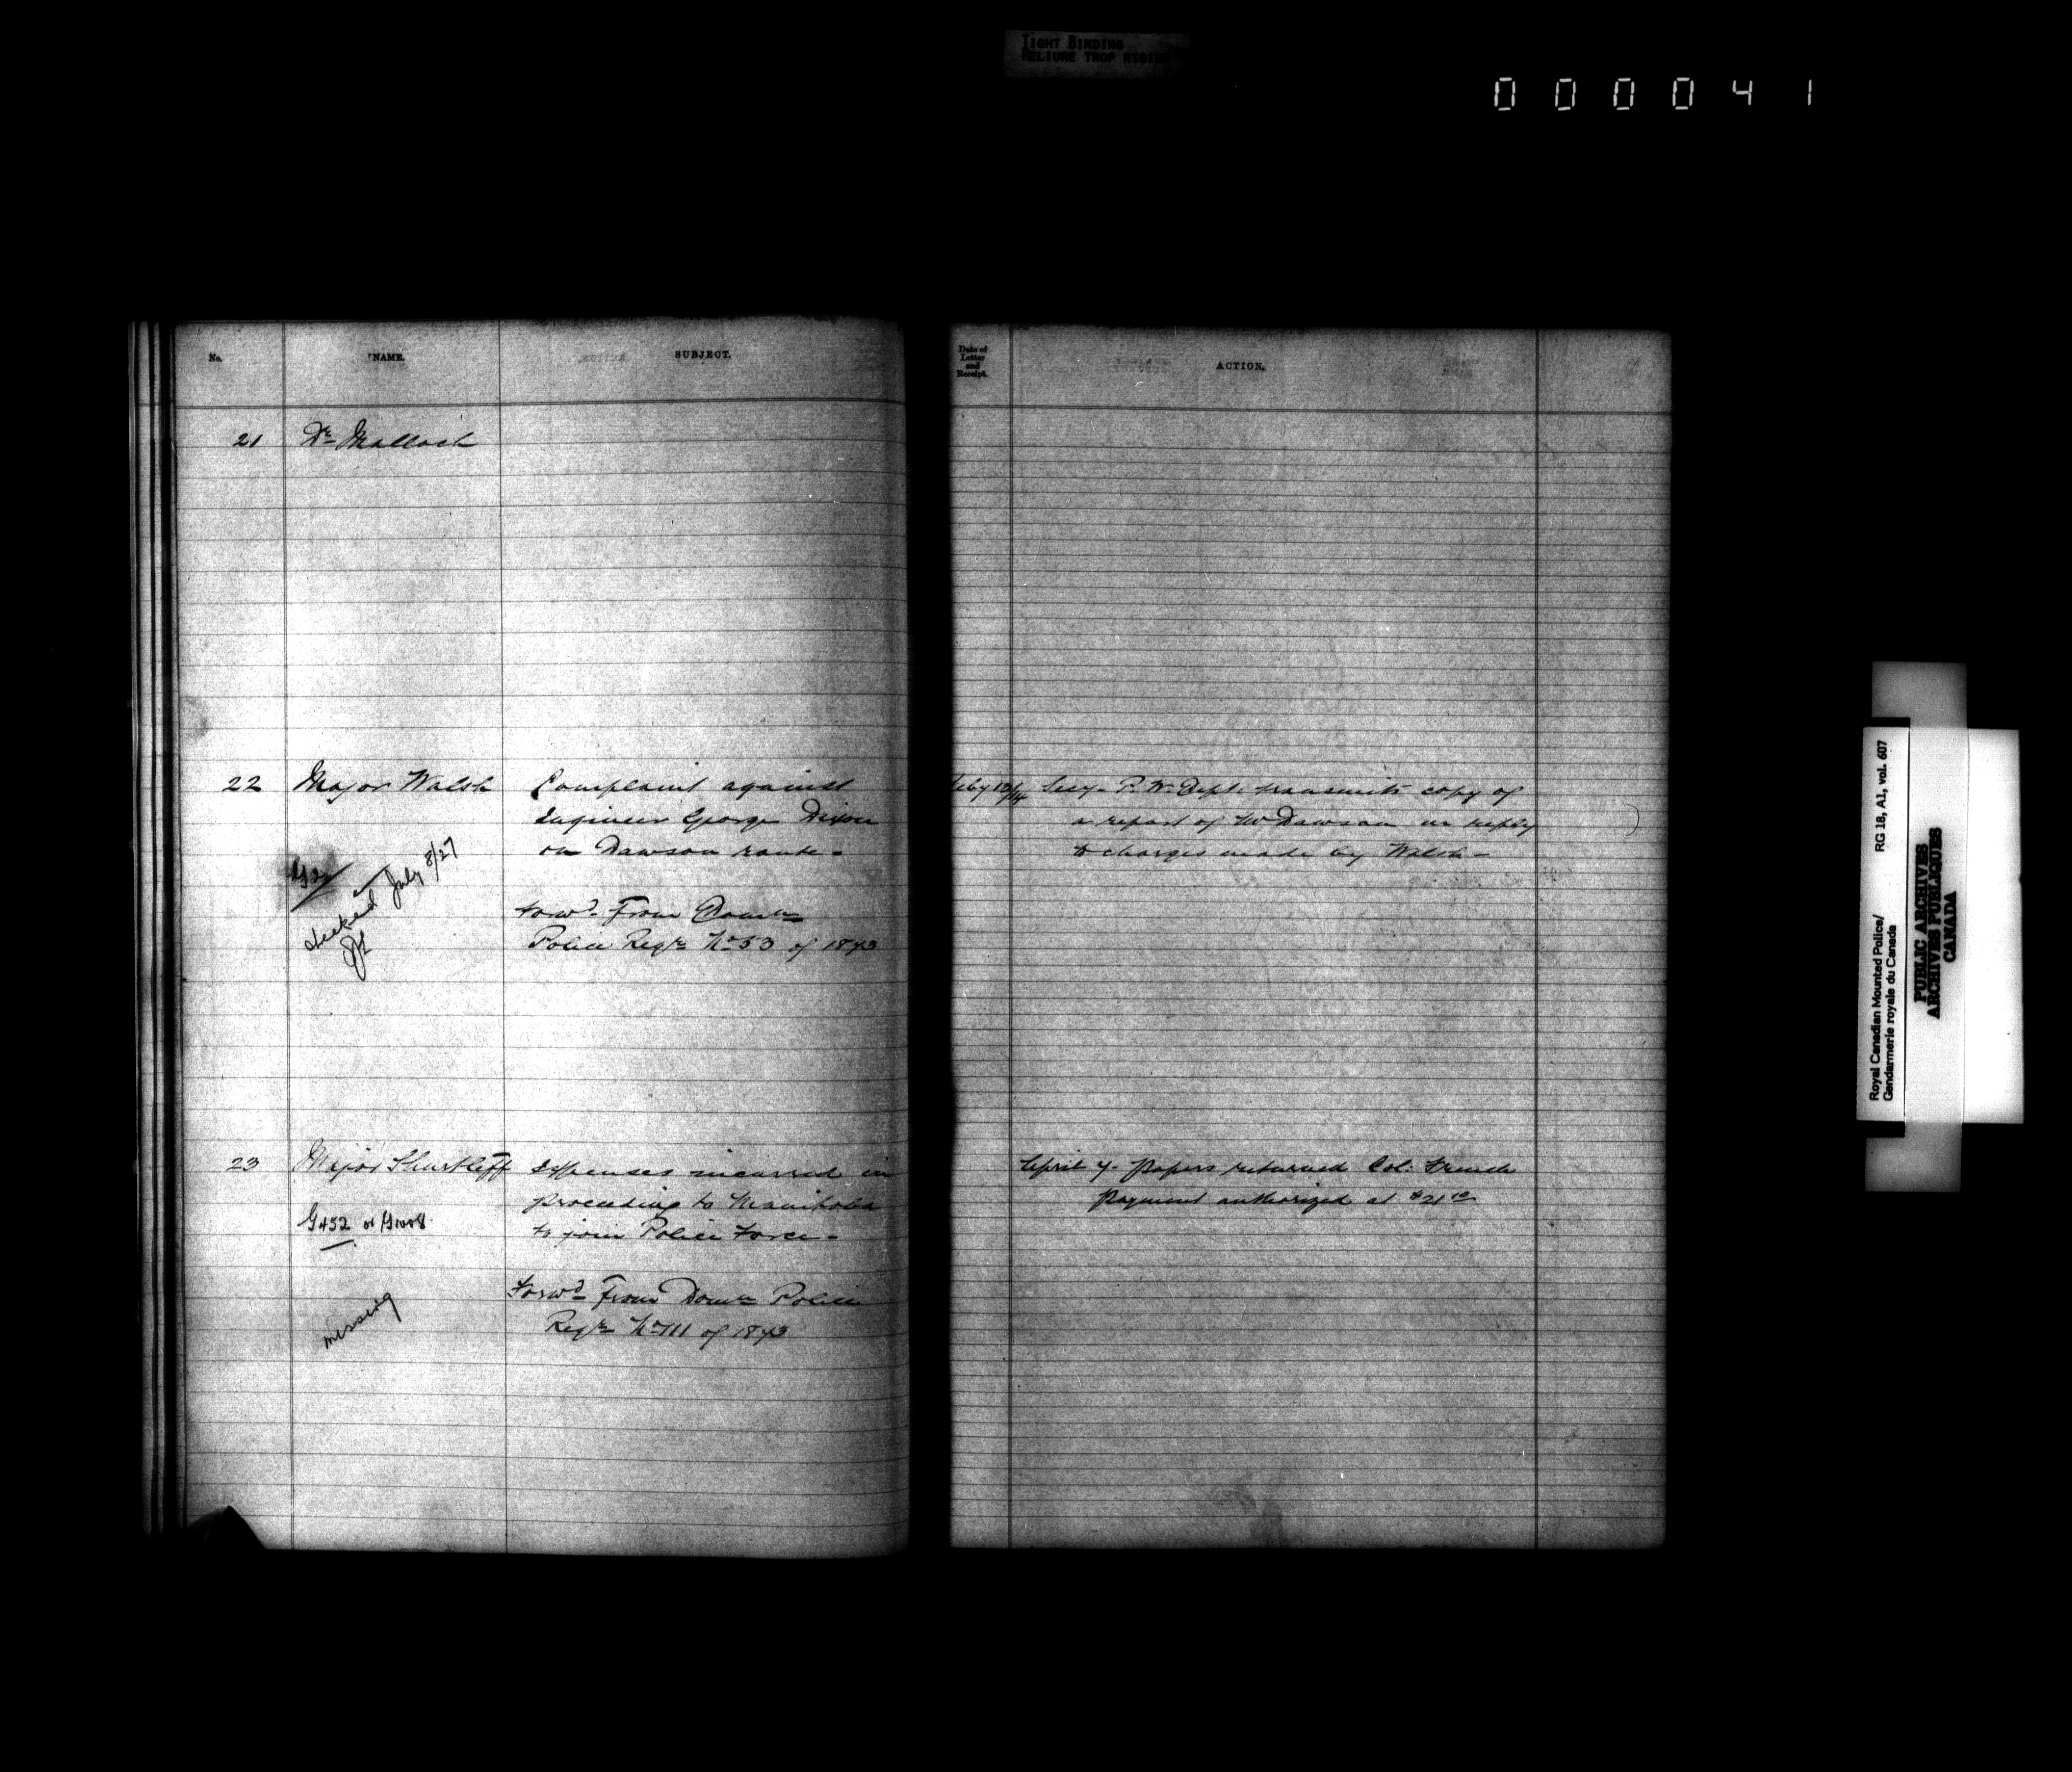 TIGHT BINDING
RELIURE TROP RIGIDE
000041
No.
NAME.
SUBJECT.
21 Dr Malloch
22 Major Walsh
Complaint against
Engineer George Dixon
on Dawson route -
checked July 8/27
Forwd From Domn
Police Regr No 53 of 1873
23 Major Shurtleff
Expenses incurred in
proceeding to Manitoba
to join Police Force -
G452 or G1008
missing
Forwd From Domn Police
Regr No 111 of 1873
Date of
Letter
and
Receipt.
ACTION.
Feby 12/74 Secy P. W. Dept. transmits copy of
a report of Mr Dawson in reply
to charges made by Walsh -
April 7. Papers returned Col. French
Payment authorized at $21
Royal Canadian Mounted Police/
Gendarmerie royale du Canada
RG 18, A1, vol. 607
PUBLIC ARCHIVES
ARCHIVES PUBLIQUES
CANADA